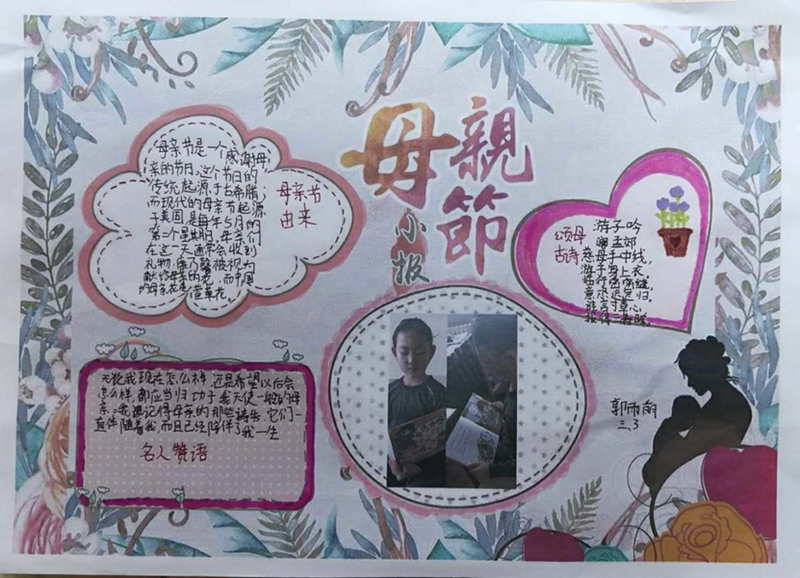 母親節
小报
母亲节
由来
母亲节是一个感谢母
亲的节日,这个节日的
传统起源于古希腊,
而现代的母亲节起源
于美国,是每年5月的
第二个星期日,母亲们
在这一天通常会收到
礼物,康乃馨被视为
献给母亲的花,而中国
的母亲花是萱草花。
颂母
古诗
游子吟
孟郊
慈母手中线,
游子身上衣,
临行密密缝,
意恐迟迟归,
谁言寸草心,
报得三春晖。
无论我现在怎么样,还是希望以后会
怎么样,都应当归功于我天使一般的母
亲。我记得母亲的那些祷告,它们一
直伴随着我,而且已经陪伴了我一生
名人赞语
郭雨
三、3